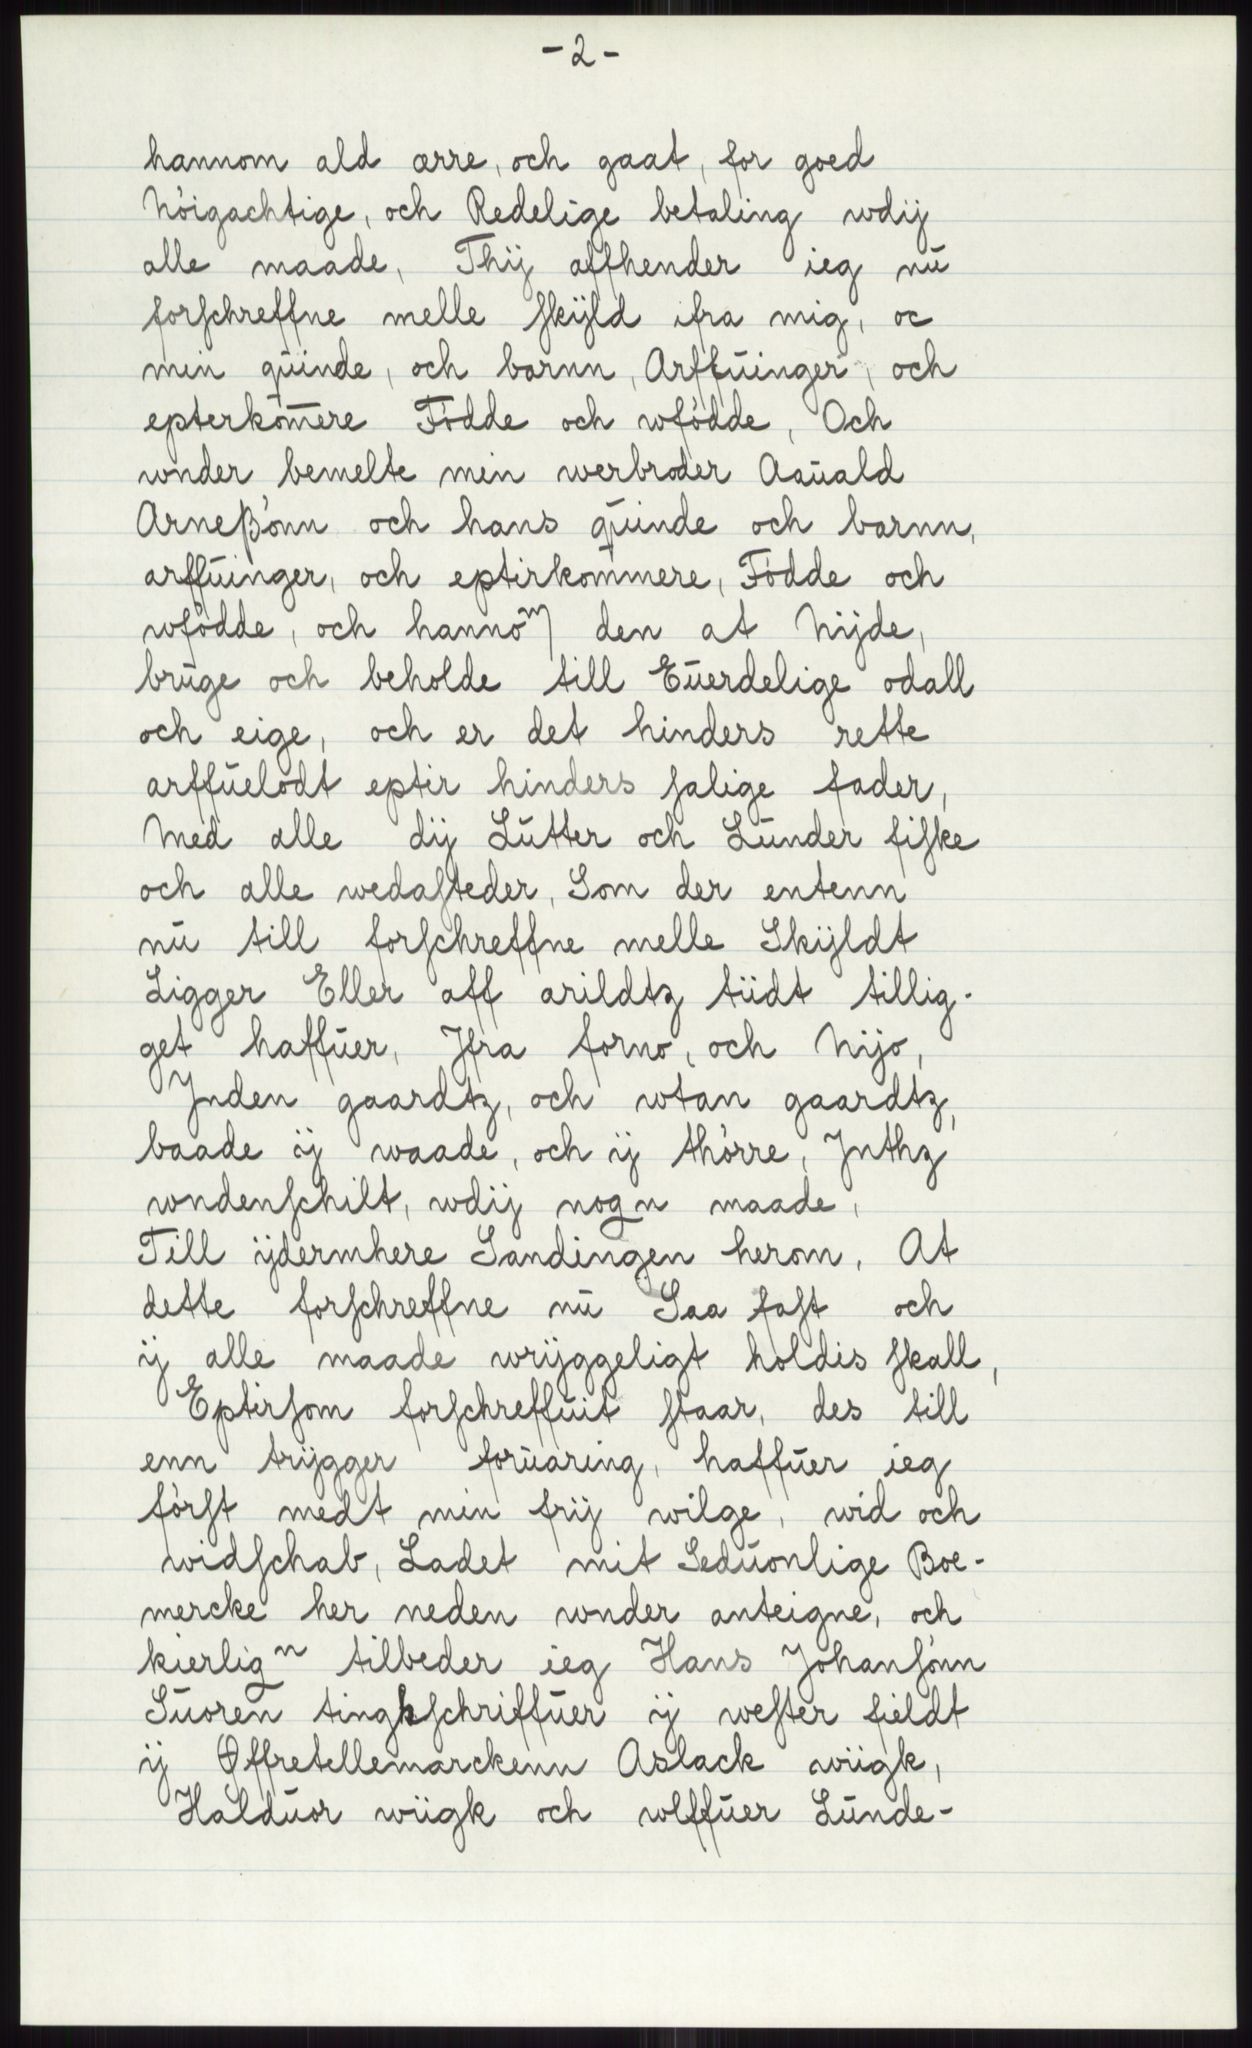 - 2 -
hannom ald ærre, och gaat, for goed
Nóigachtige, och Redelige betaling wdij
alle maade, Thij affhender ieg nū
forschreffne melle skijld ifra mig, oc
min qūinde, och barnn, Arffūinger, och
epterkom̄ere Fódde och wfódde, Och
wnder bemelte min werbroder Aaūald
Arneßónn och hans qūinde och barnn,
arffūinger, och eptirkommere, Fódde och
wfódde, och hannom den at Nijde,
brūge och beholde till Eūerdelige odall
och eige, och er det hinders rette
arffūelodt eptir hinders salige fader,
Med alle dij Lūtter och Lūnder fiske
och alle wedasteder, Som der entenn
nū till forschreffne melle Skijldt
Ligger Eller aff arildtz tiidt tillig-
get haffūer, Jfra forno, och Nijo,
Jnden gaardtz, och wtan gaardtz,
baade ij waade, och ij thórre, Jnthz
wndenschilt, wdij nogn maade,
Till ijdermhere Sandingen herom, At
dette forschreffne nū Saa fast och
ij alle maade wrijggeligt holdis skall,
Eptirsom forschreffūit staar, des till
enn trijgger forūaring, haffūer ieg
fórst medt min frij wilge, wid och
widschab, Ladet mit Sedūonlige Boe-
mercke her neden wnder anteigne, och
kierligⁿ tilbeder ieg Hans Johansónn
Sūoren tingschriffūer ij wester fieldt
ij Øffretellemarckenn Aslack wiigk,
Haldūor wiigk och wlffūer Lūnde-